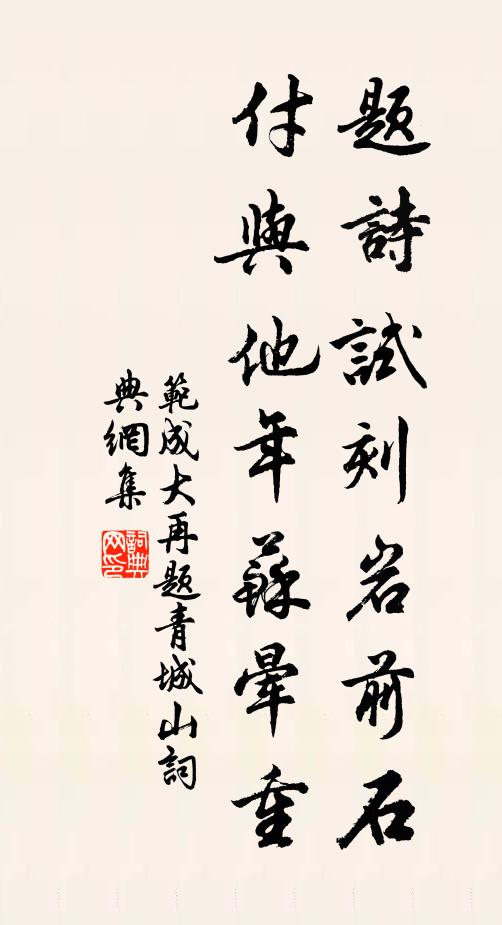 題詩試刻岩前石
付與他年蘇暈重
範成大再题青城山詞
典網集
詞典
网印